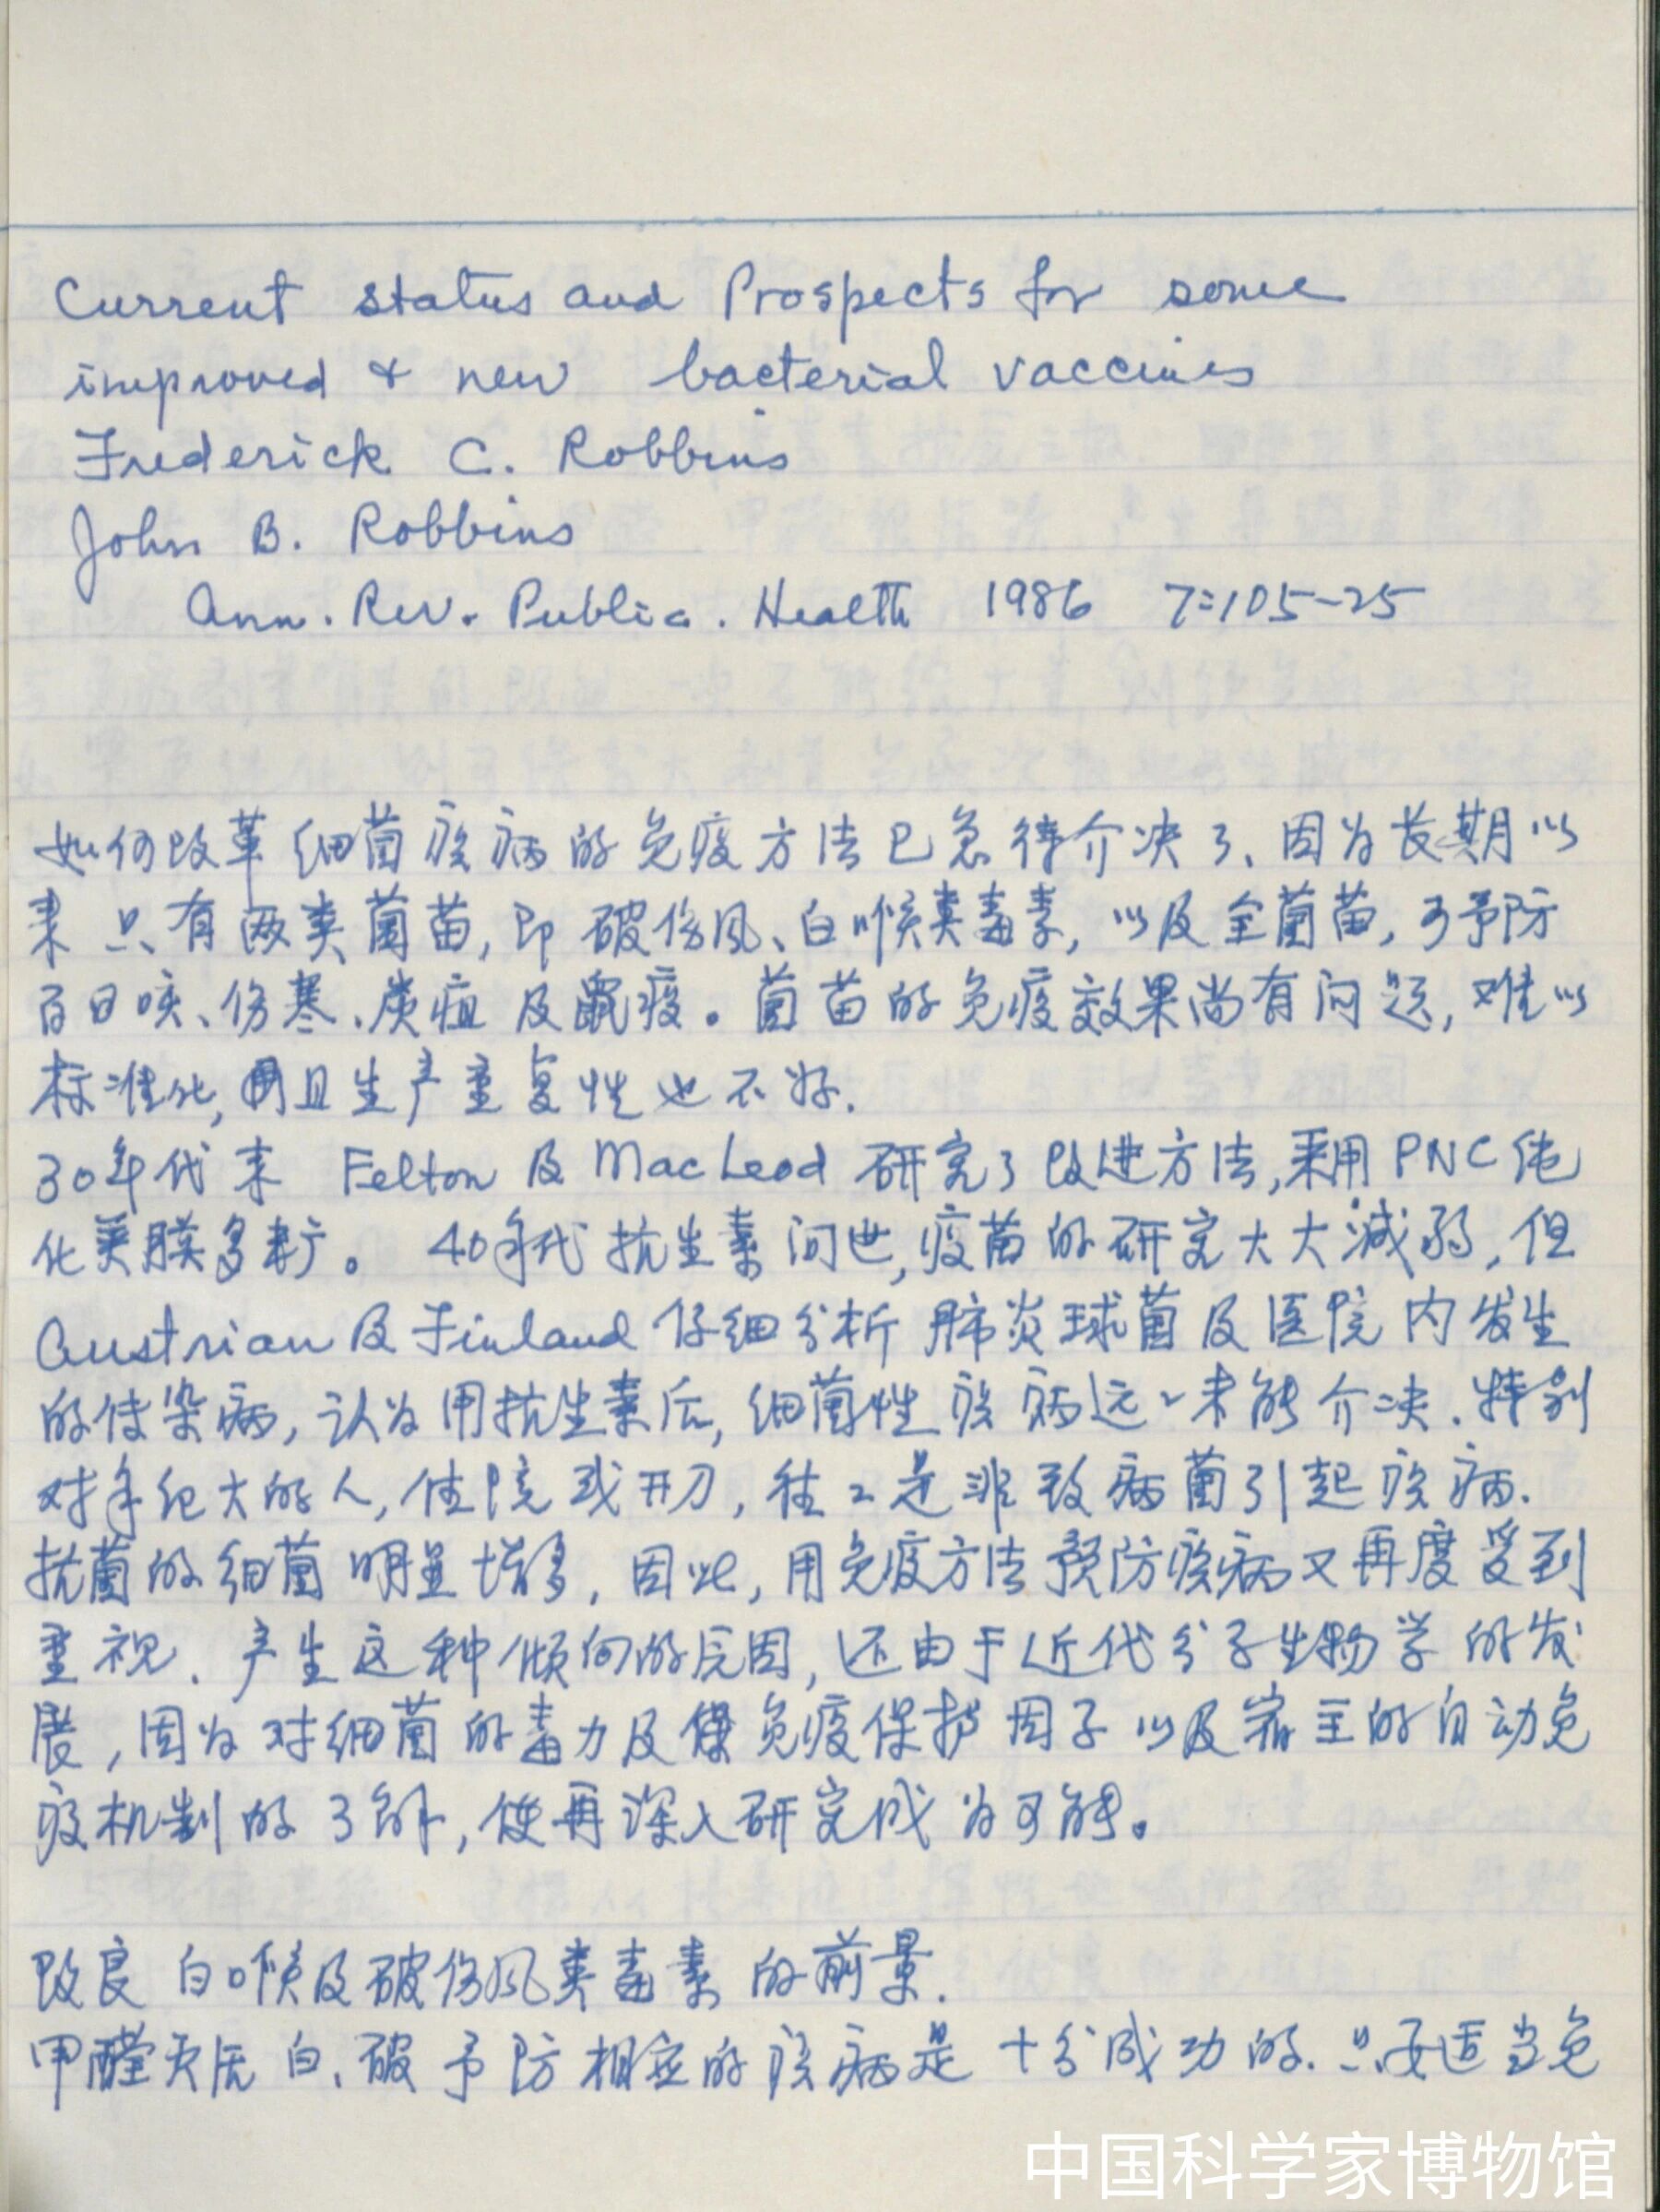 Current status and Prospects for some
improved & new bacterial vaccines
Frederick C. Robbins
John B. Robbins
Ann. Rev. Public. Health 1986 7:105-25
如何改革细菌疾病的免疫方法已急待介决了、因为长期以
来只有两类菌苗,即破伤风、白喉类毒素,以及全菌苗,可予防
百日咳、伤寒、炭疽及鼠疫。菌苗的免疫效果尚有问题,难以
标准化,而且生产重复性也不好.
30年代末 Felton 及 MacLeod 研究了改进方法,采用PNC纯
化荚膜多糖。 40年代抗生素问世,疫苗的研究大大减弱,但
Austrian 及 Finland 仔细分析肺炎球菌及医院内发生
的传染病,认为用抗生素后,细菌性疾病远々未能介决.特别
对年纪大的人,住院或开刀,往々是非致病菌引起疾病.
抗菌的细菌明显增多,因此,用免疫方法预防疾病又再度受到
重视.产生这种倾向的原因,还由于近代分子生物学的发
展,因为对细菌的毒力及免疫保护因子以及宿主的自动免
疫机制的了解,使再深入研究成为可能。
改良白喉及破伤风类毒素的前景.
甲醛灭活白、破予防相应的疾病是十分成功的.只要适当免
中国科学家博物馆